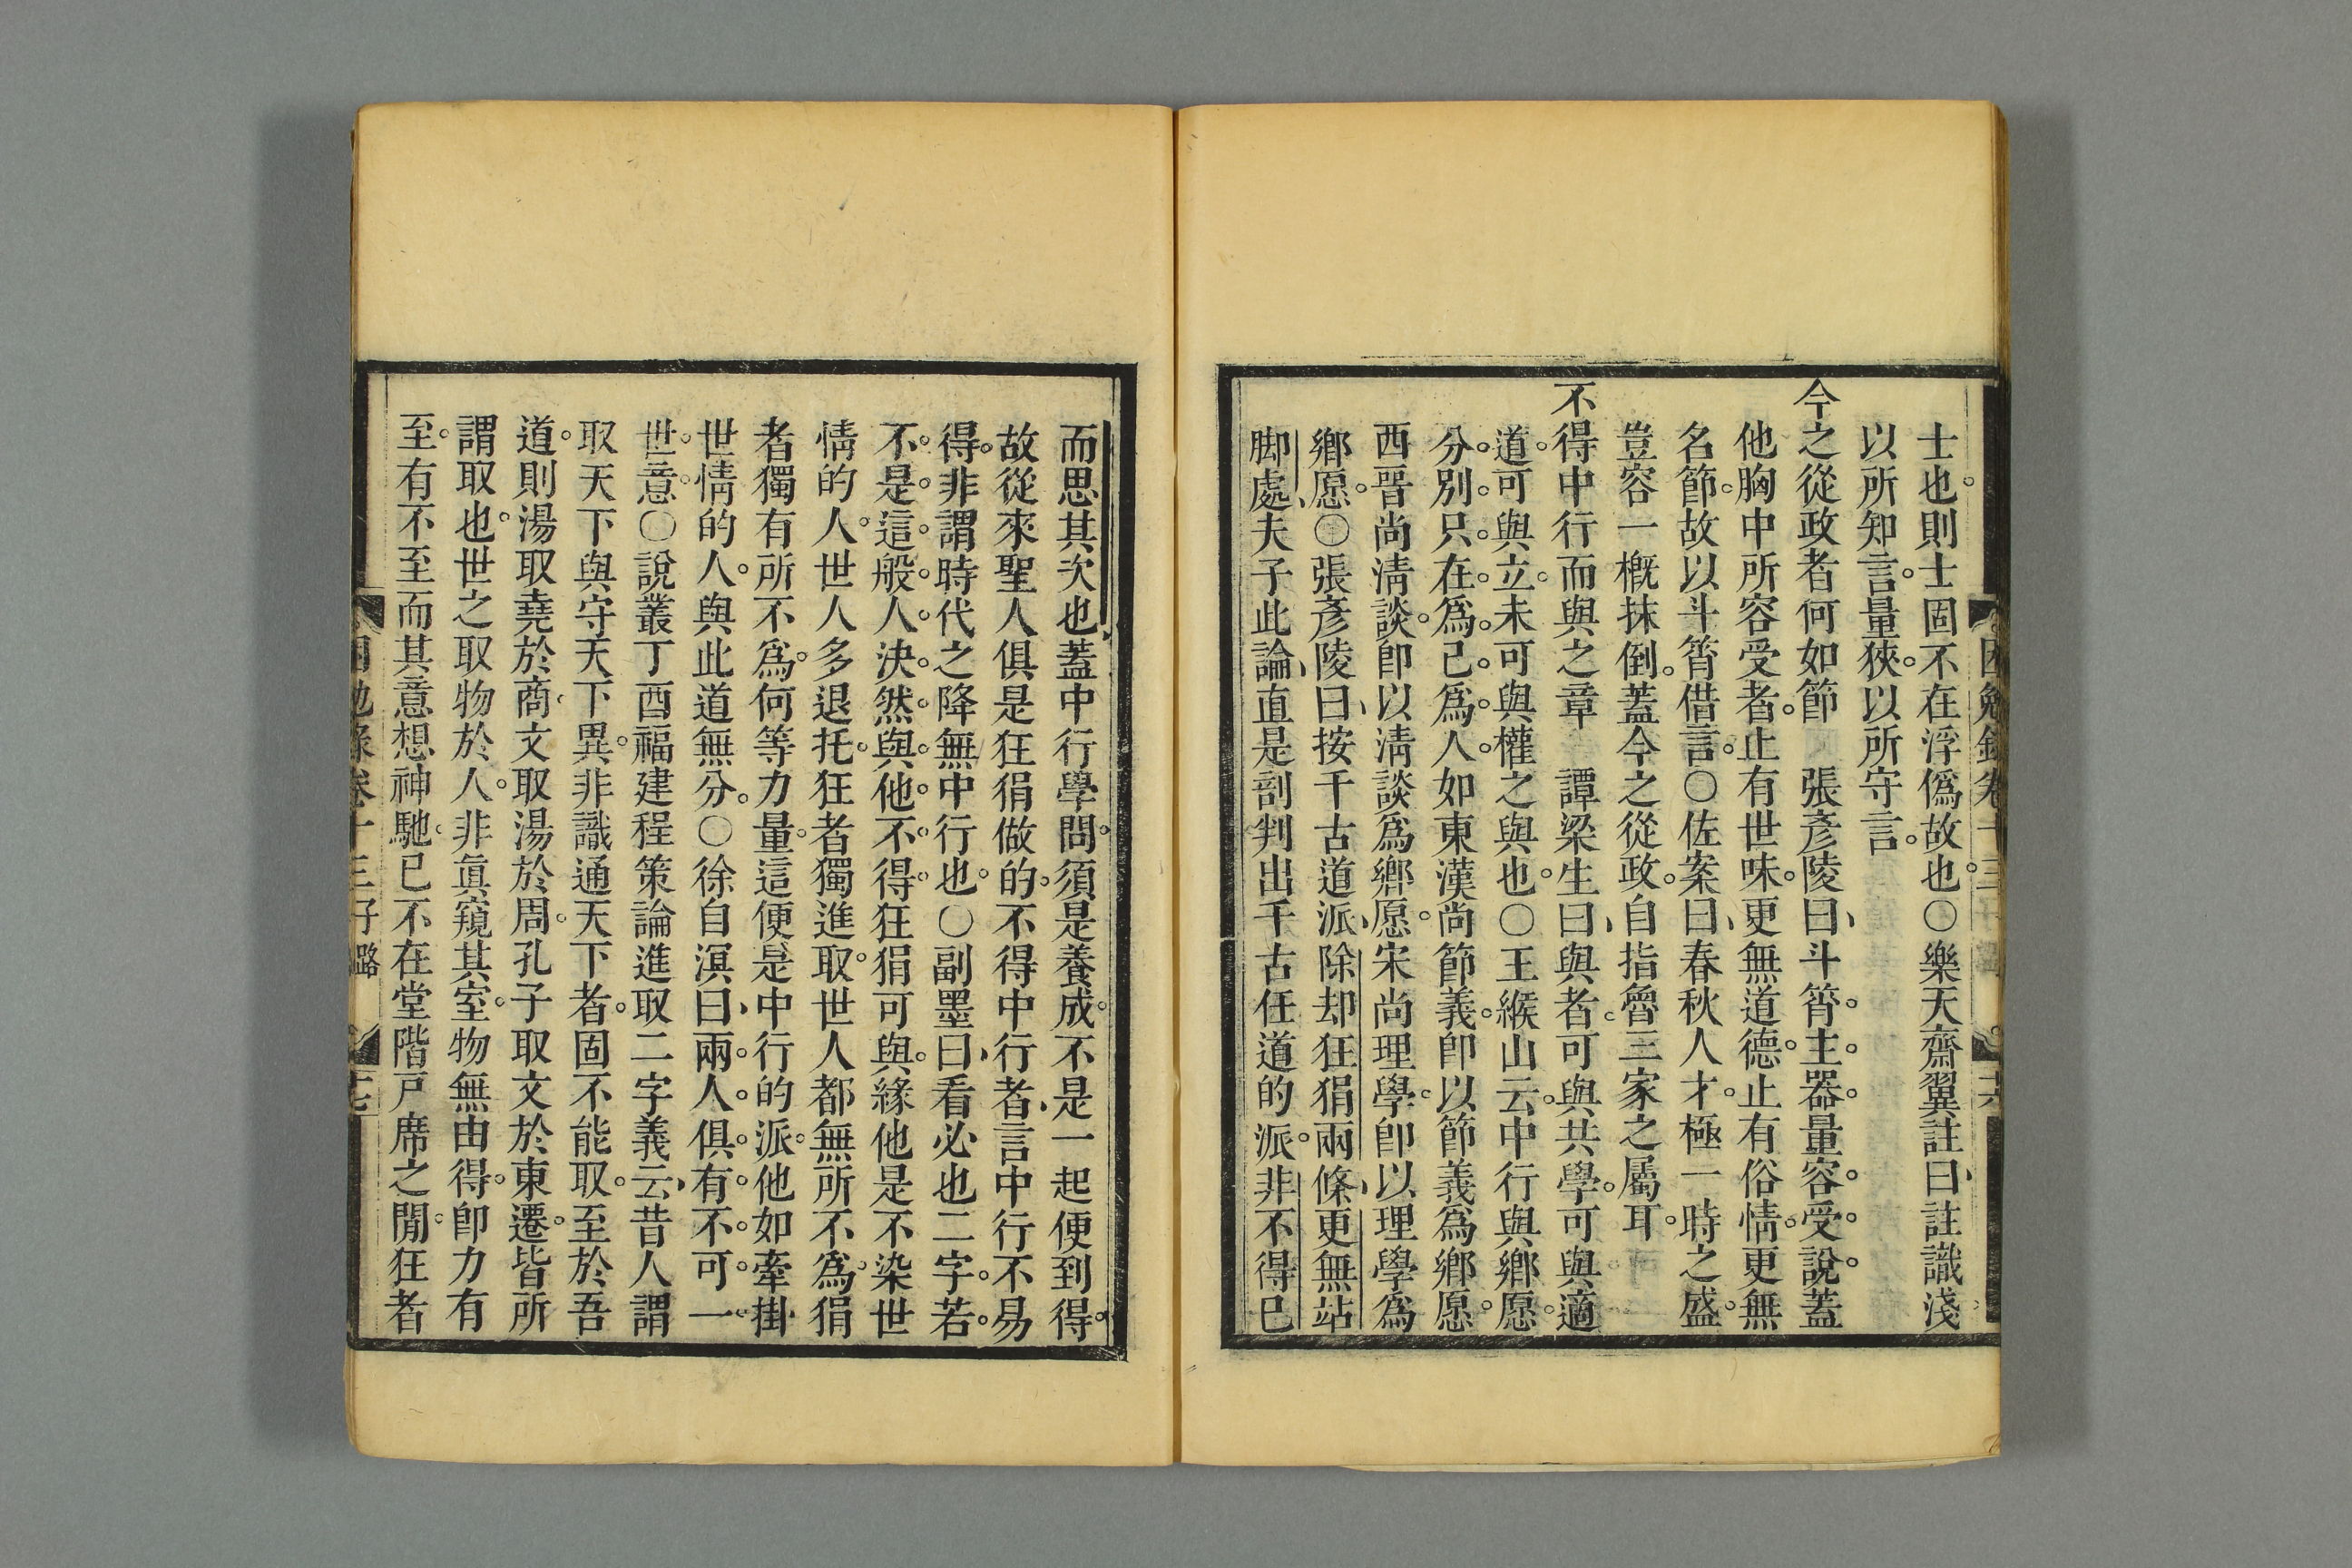 士也則士固不在浮僞故也○樂天齋翼註曰註識淺
以所知言量狹以所守言
今之從政者何如節　張彥陵曰斗筲主器量容受說蓋
他胸中所容受者止有世味更無道德止有俗情更無
名節故以斗筲借言○佐案曰春秋人才極一時之盛
豈容一槪抹倒蓋今之從政自指魯三家之屬耳
不得中行而與之章　譚梁生曰與者可與共學可與適
道可與立未可與權之與也○王緱山云中行與鄉愿
分別只在爲己爲人如東漢尚節義卽以節義爲鄉愿
西晉尚淸談卽以淸談爲鄉愿宋尚理學卽以理學爲
鄉愿○張彥陵曰按千古道派除却狂狷兩條更無站
脚處夫子此論直是剖判出千古任道的派非不得已
而思其次也蓋中行學問須是養成不是一起便到得
故從來聖人俱是狂狷做的不得中行者言中行不易
得非謂時代之降無中行也○副墨曰看必也二字若
不是這般人決然與他不得狂狷可與緣他是不染世
情的人世人多退托狂者獨進取世人都無所不爲狷
者獨有所不爲何等力量這便是中行的派他如牽掛
世情的人與此道無分○徐自溟曰兩人俱有不可一
世意○說叢丁酉福建程策論進取二字義云昔人謂
取天下與守天下異非識通天下者固不能取至於吾
道則湯取堯於商文取湯於周孔子取文於東遷皆所
謂取也世之取物於人非眞窺其室物無由得卽力有
至有不至而其意想神馳已不在堂階戸席之閒狂者
困勉錄卷十三子路 十七